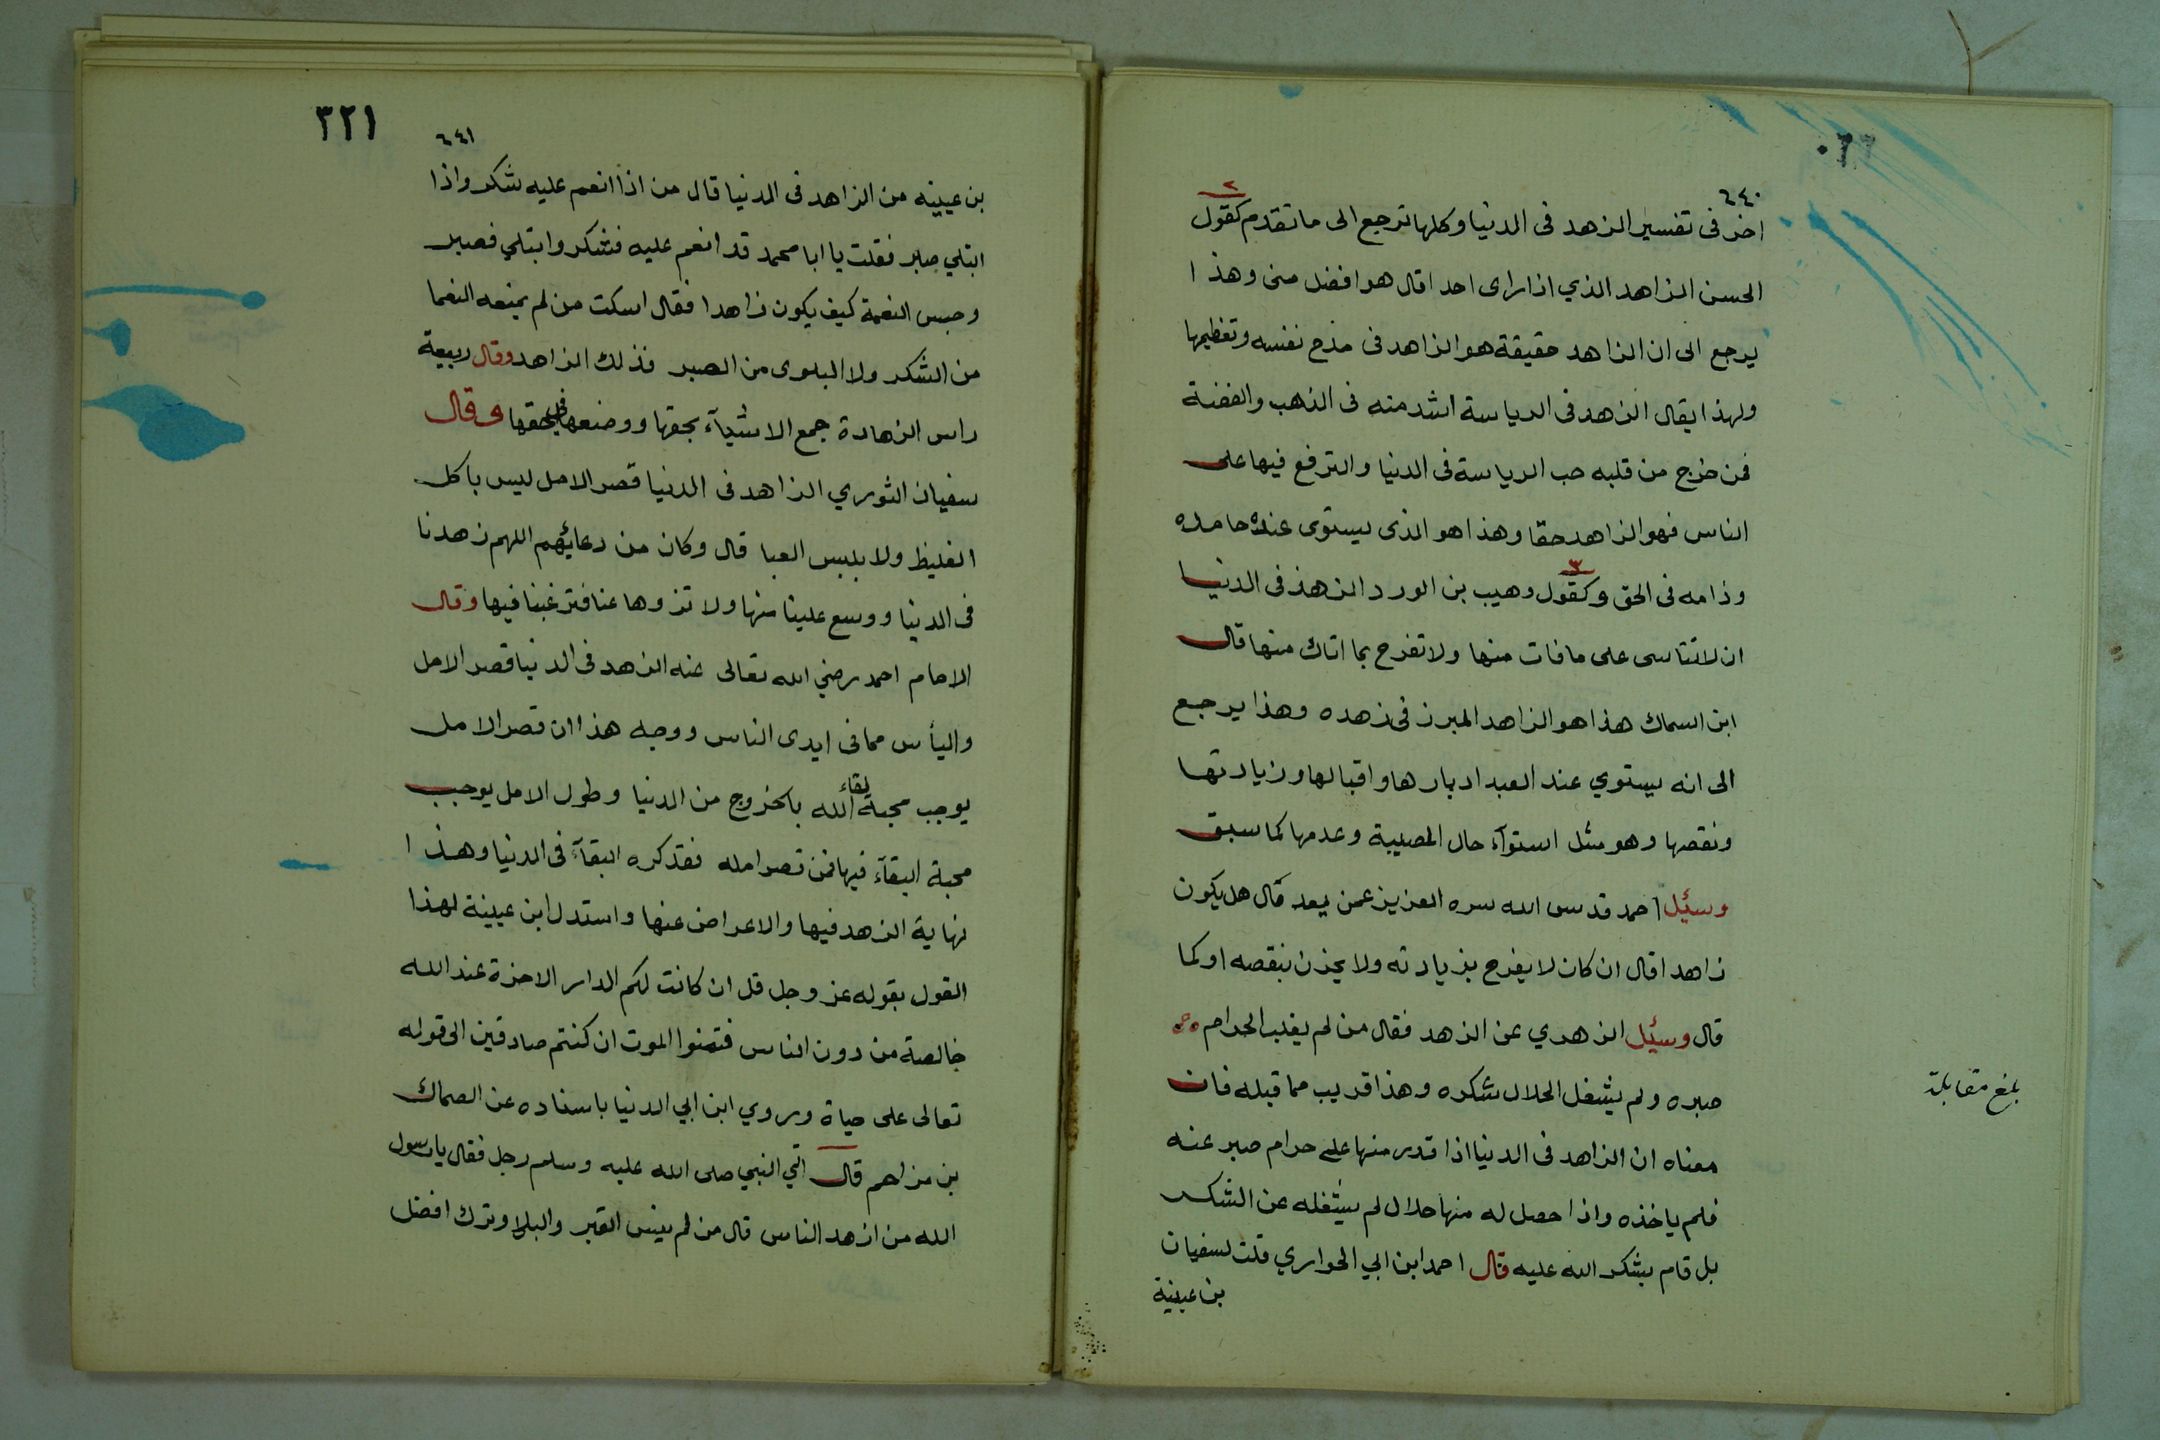 ٦٤٠
٢
اخر فى تفسير الزهد فى الدنيا وكلها ترجع الى ما تقدم كقول
الحسن الزاهد الذي اذا راى احد اقال هو افضل منى وهذا
يرجع الى ان الزاهد حقيقة هو الزاهد فى مدح نفسه وتعظيمها
ولهذا يقال الزهد فى الرياسة اشد منه فى الذهب والفضة
فمن خرج من قلبه حب الرياسة فى الدنيا والترفع فيها على
الناس فهو الزاهد حقا وهذا هو الذى يستوى عنده حامده
٣
وذامه فى الحق وكقول وهيب بن الورد الزهد فى الدنيا
ان لا تتاسى على ما فات منها ولا تفرح بما اتاك منها قال
ابن السماك هذا هو الزاهد المبرز فى زهده وهذا يرجع
الى انه يستوي عند العبد ادبارها واقبالها وزيادتها
ونقصها وهو مثل استوآء حال المصيبة وعدمها كما سبق
وسئيل احمد قدس الله سره العزيز عمن يعد قال هل يكون
زاهدا قال ان كان لا يفرح بزيادته ولا يحزن بنقصه اوكما
قال وسئيل الزهري عن الزهد فقال من لم يغلب الحرام
صبره ولم يشغل الحلال شكره وهذا قريب مما قبله فان
معناه ان الزاهد فى الدنيا اذا قدر منها على حرام صبر عنه
فلم ياخذه واذا حصل له منها حلال لم يشغله عن الشكر
بل قام بشكر الله عليه قال احمد ابن ابي الحواري قلت لسفيان
بن عيينة
بلغ مقابلة
٣٢١
٦٤١
بن عيينه من الزاهد فى الدنيا قال من اذا انعم عليه شكر واذا
ابتلي صبر فقلت يا ابا محمد قد انعم عليه فشكر وابتلي فصبر
وحبس النعمة كيف يكون زاهدا فقال اسكت من لم يمنعه النعما
من الشكر ولا البلوى من الصبر فذلك الزاهد وقال ربيعة
راس الزهادة جمع الاشيآء بحقها ووضعها فى حقها وقال
سفيان الثوري الزاهد فى الدنيا قصر الامل ليس باكل
الغليظ ولا بلبس العبا قال وكان من دعائهم اللهم زهدنا
فى الدنيا ووسع علينا منها ولا تزوها عنا فترغبنا فيها وقال
الامام احمد رضي الله تعالى عنه الزهد فى الدنيا قصر الامل
واليأس مما فى ايدى الناس ووجه هذا ان قصر الامل
يوجب محبة لقاء الله بالخروج من الدنيا وطول الامل يوجب
محبة البقآء فيها فمن قصر امله فقد كره البقآء فى الدنيا وهذا
نهاية الزهد فيها والاعراض عنها واستدل ابن عيينة لهذا
القول بقوله عز وجل قل ان كانت لكم الدار الاخرة عند الله
خالصة من دون الناس فتمنوا الموت ان كنتم صادقين الى قوله
تعالى على حياة وروي ابن ابي الدنيا باسناده عن الضحاك
بن مزاحم قال اتي النبي صلى الله عليه وسلم رجل فقال يا رسول
الله من ازهد الناس قال من لم ينس القبر والبلا وترك افضل